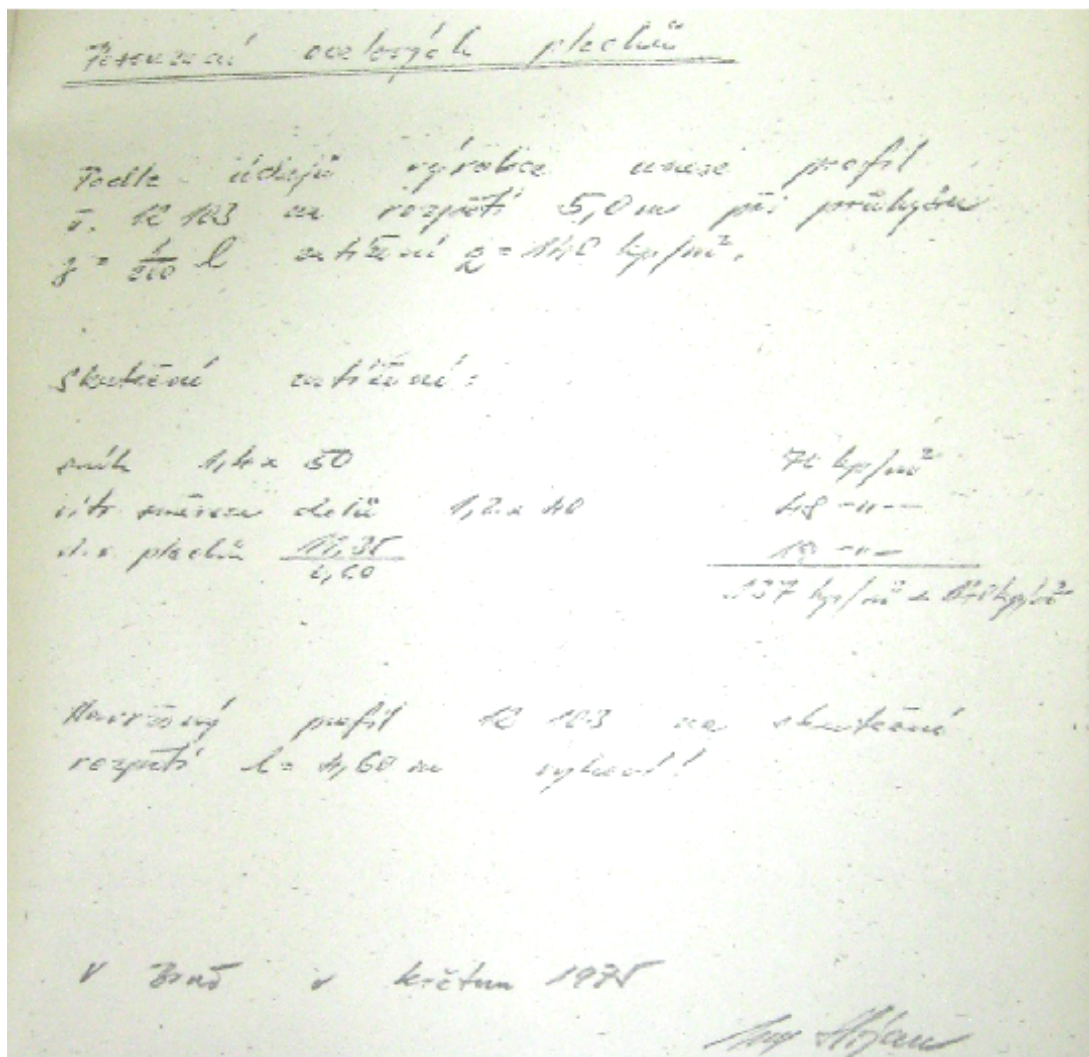 Posouzení ocelových plechů
Podle údajů výrobce unese profil
č. 12 103 na rozpětí 5,0 m při průhybu
l zatížení q = 140 kp/m².
Skutečné zatížení:
sníh 1,4 x 50 70 kp/m²
vítr směrem dolů 1,2 x 40 48 -"-
plechů 19 -"-
137 kp/m² < 140 kp/m²
Navržený profil 12 103 na skutečné
rozpětí l = 4,60 m vyhoví!
V Brně v květnu 1975
Ing.